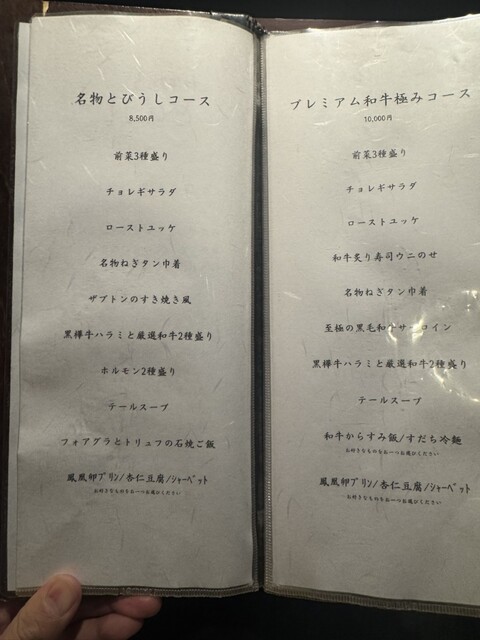 名物とびうしコース
8,500円
前菜3種盛り
チョレギサラダ
ローストユッケ
名物ねぎタン巾着
ザブトンのすき焼き風
黒樺牛ハラミと厳選和牛2種盛り
ホルモン2種盛り
テールスープ
フォアグラとトリュフの石焼ご飯
鳳凰卵プリン/杏仁豆腐/シャーベット
お好きなものをお一つお選びください
プレミアム和牛極みコース
10,000円
前菜3種盛り
チョレギサラダ
ローストユッケ
和牛炙り寿司ウニのせ
名物ねぎタン巾着
至極の黒毛和牛サーロイン
黒樺牛ハラミと厳選和牛2種盛り
テールスープ
和牛からすみ飯/すだち冷麺
お好きなものをお一つお選びください
鳳凰卵プリン/杏仁豆腐/シャーベット
お好きなものをお一つお選びください